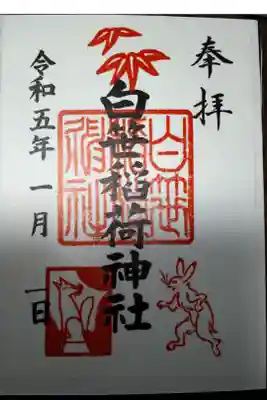 奉拝
白笹稲荷神社
令和五年 一月 一日